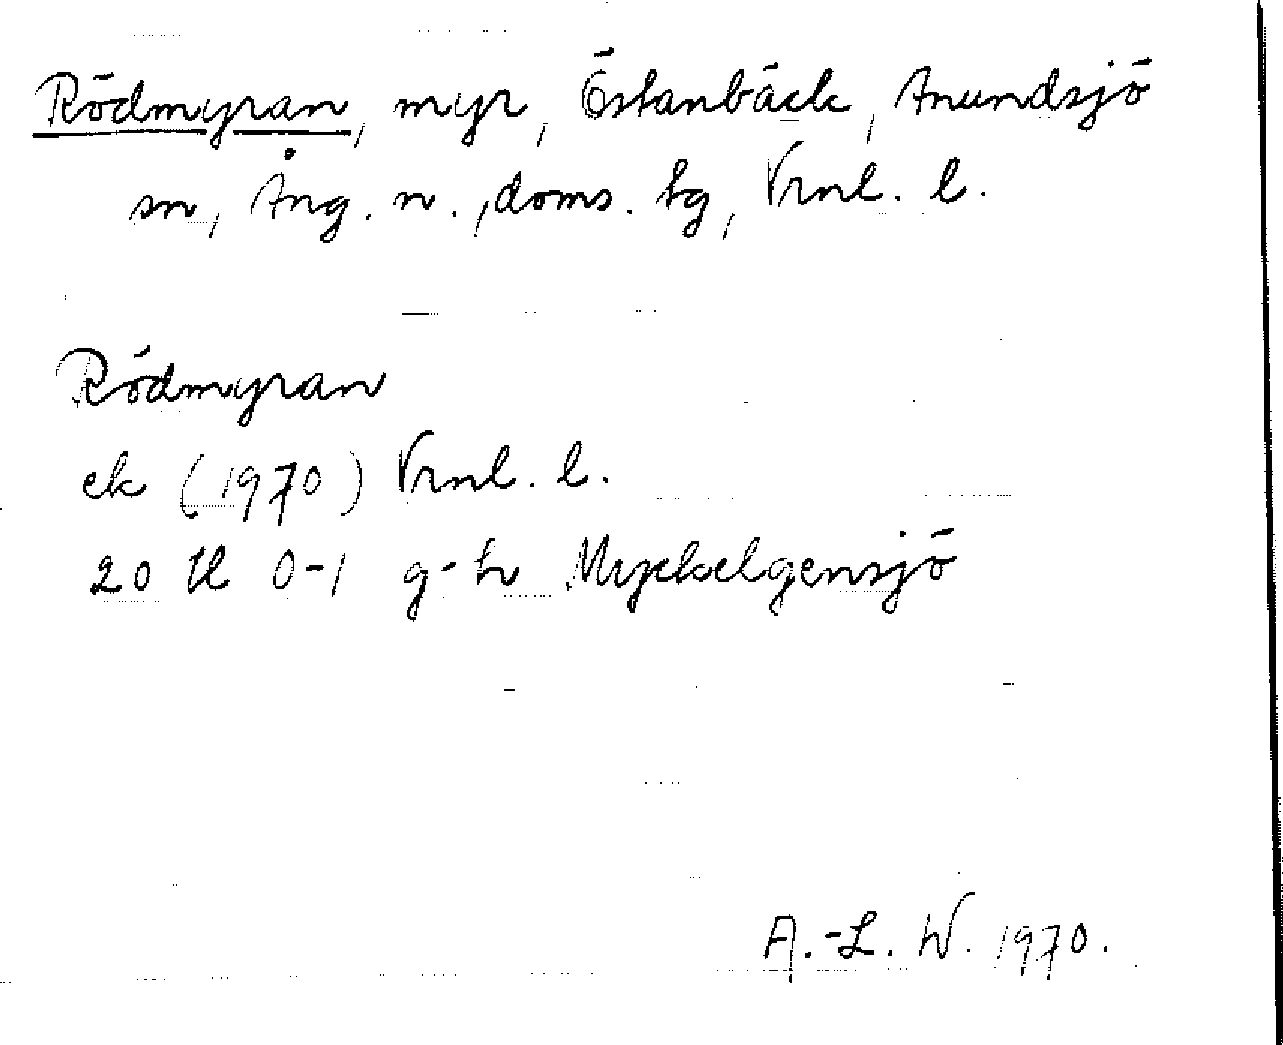 Rödmyran, myr, Östanbäck, Anundsjö
sn, Ång. n., doms. hg, Vrnl. l.
Rödmyran
ek (1970) Vrnl. l.
20 H 0-1 g-h Myckelgensjö
A.-L. W. 1970.